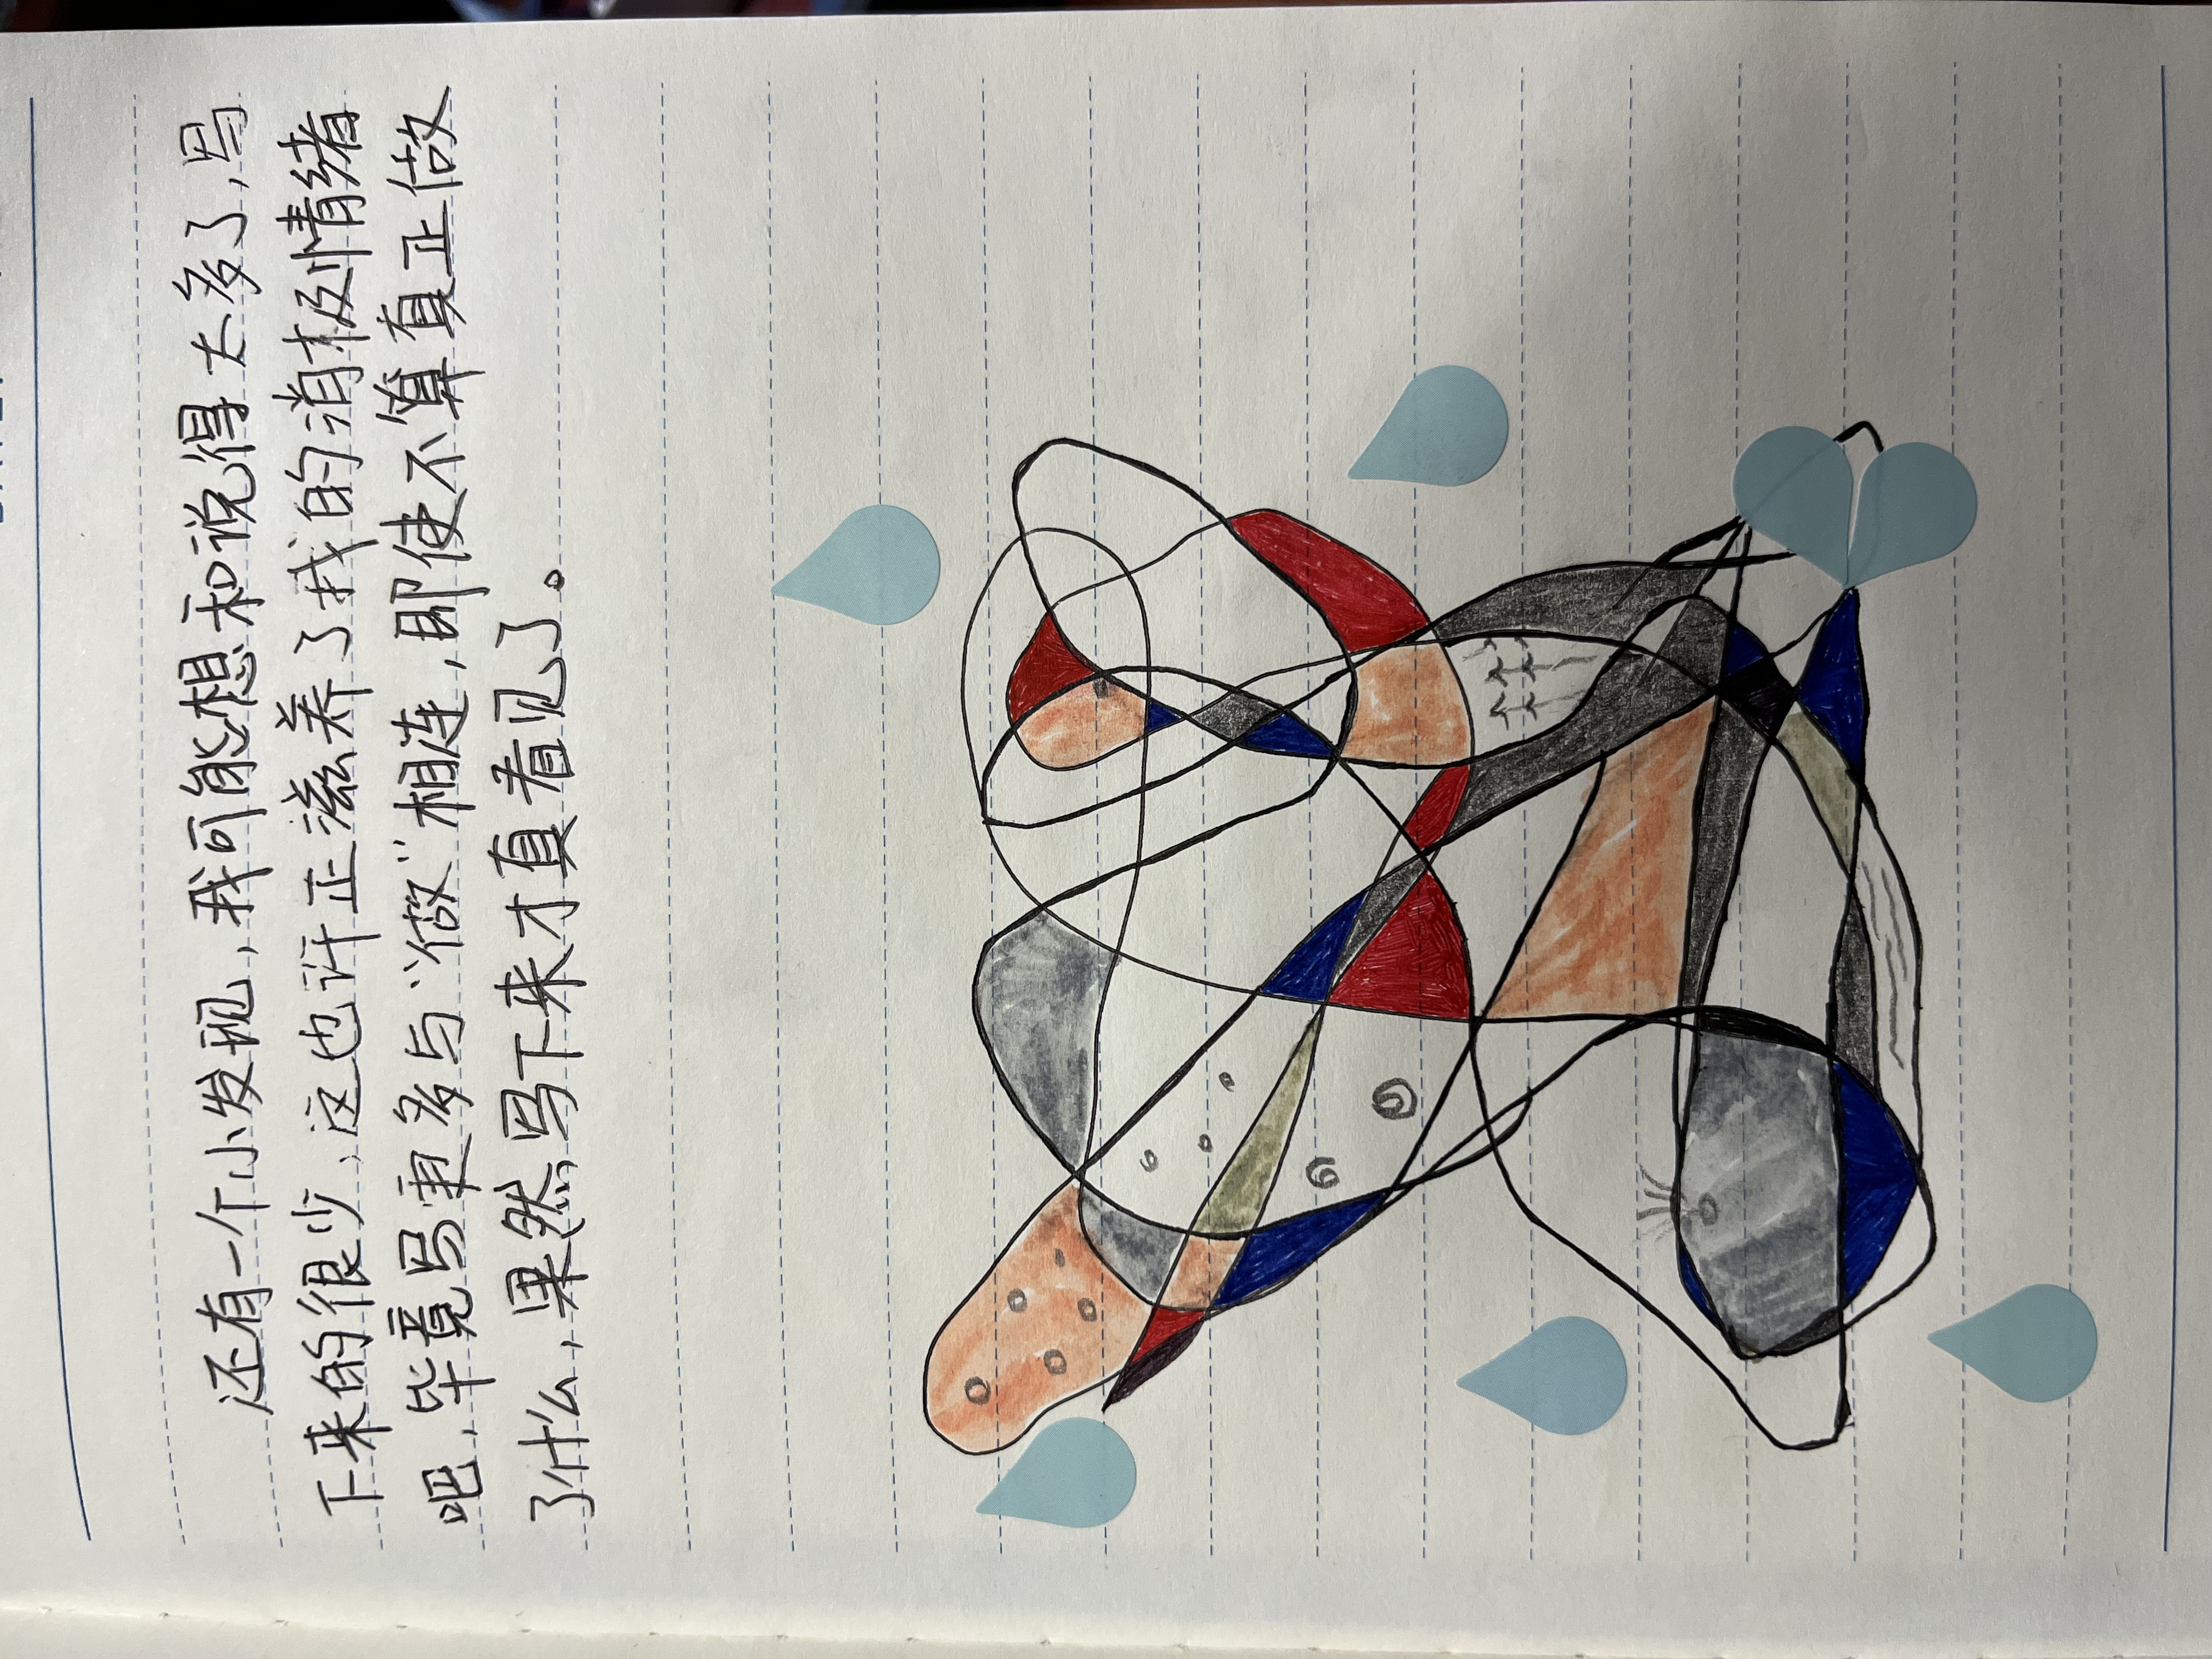 还有一个小发现，我可能想和说得太多了，写
下来的很少，这也许正滋养了我的消极情绪
吧，毕竟写更多与“做”相连，即使不算真正做
了什么，果然写下来才真看见了。